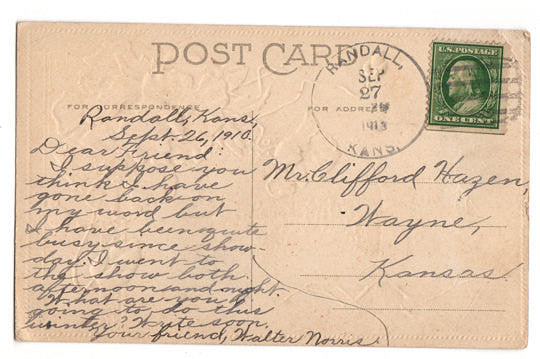 POST CARD
RANDALL,
SEP
27
1913
KANS.
U.S. POSTAGE
ONE CENT
FOR CORRESPONDENCE
FOR ADDRESS
Randall, Kans,
Sept. 26, 1910.
Dear Friend:
I suppose you
think I have
gone back on
my word but
I have been quite
busy since show-
day. I went to
the show both
afternoon and night.
What are you
going to do this
winter? Write soon,
Your friend, Walter Norris
Mr. Clifford Hazen,
Wayne,
Kansas.